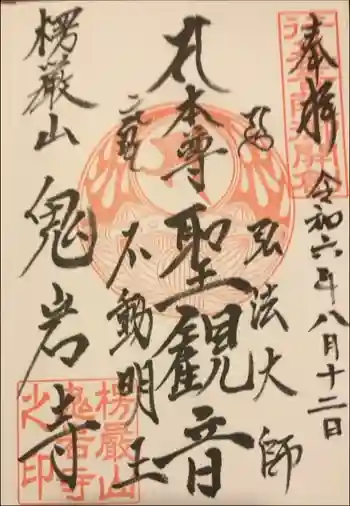 奉拝
令和六年八月十二日
弘法大師
本尊
聖観音
不動明王
楞厳山
鬼岩寺
楞嚴山
鬼岩寺
之印